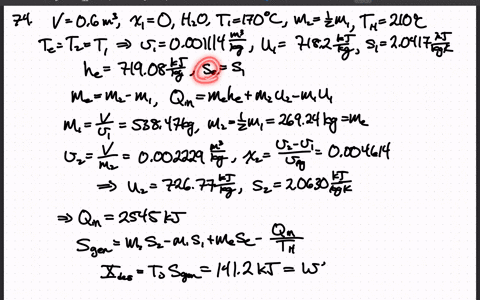 74. V=0.6m³, x₁=0, H₂O, T₁=170°C, m₂=½m₁, T_H=210°C
T_e=T₂=T₁ ⇒ υ₁=0.001114 m³/kg, u₁=718.2 kJ/kg, s₁=2.0417 kJ/kgK
h_e=719.08 kJ/kg, s_e=s₁
m_e=m₂-m₁, Q_in=m_e h_e+m₂u₂-m₁u₁
m₁=V/υ₁=538.47kg, m₂=½m₁=269.24kg=m_e
υ₂=V/m₂=0.002229 m³/kg, x₂=(υ₂-υ₁)/υ_fg=0.004614
⇒ u₂=726.77 kJ/kg, s₂=2.0630 kJ/kgK
⇒ Q_in=2545 kJ
S_gen=m₂s₂-m₁s₁+m_e s_e-Q_in/T_H
X_des=T₀S_gen=141.2 kJ=W